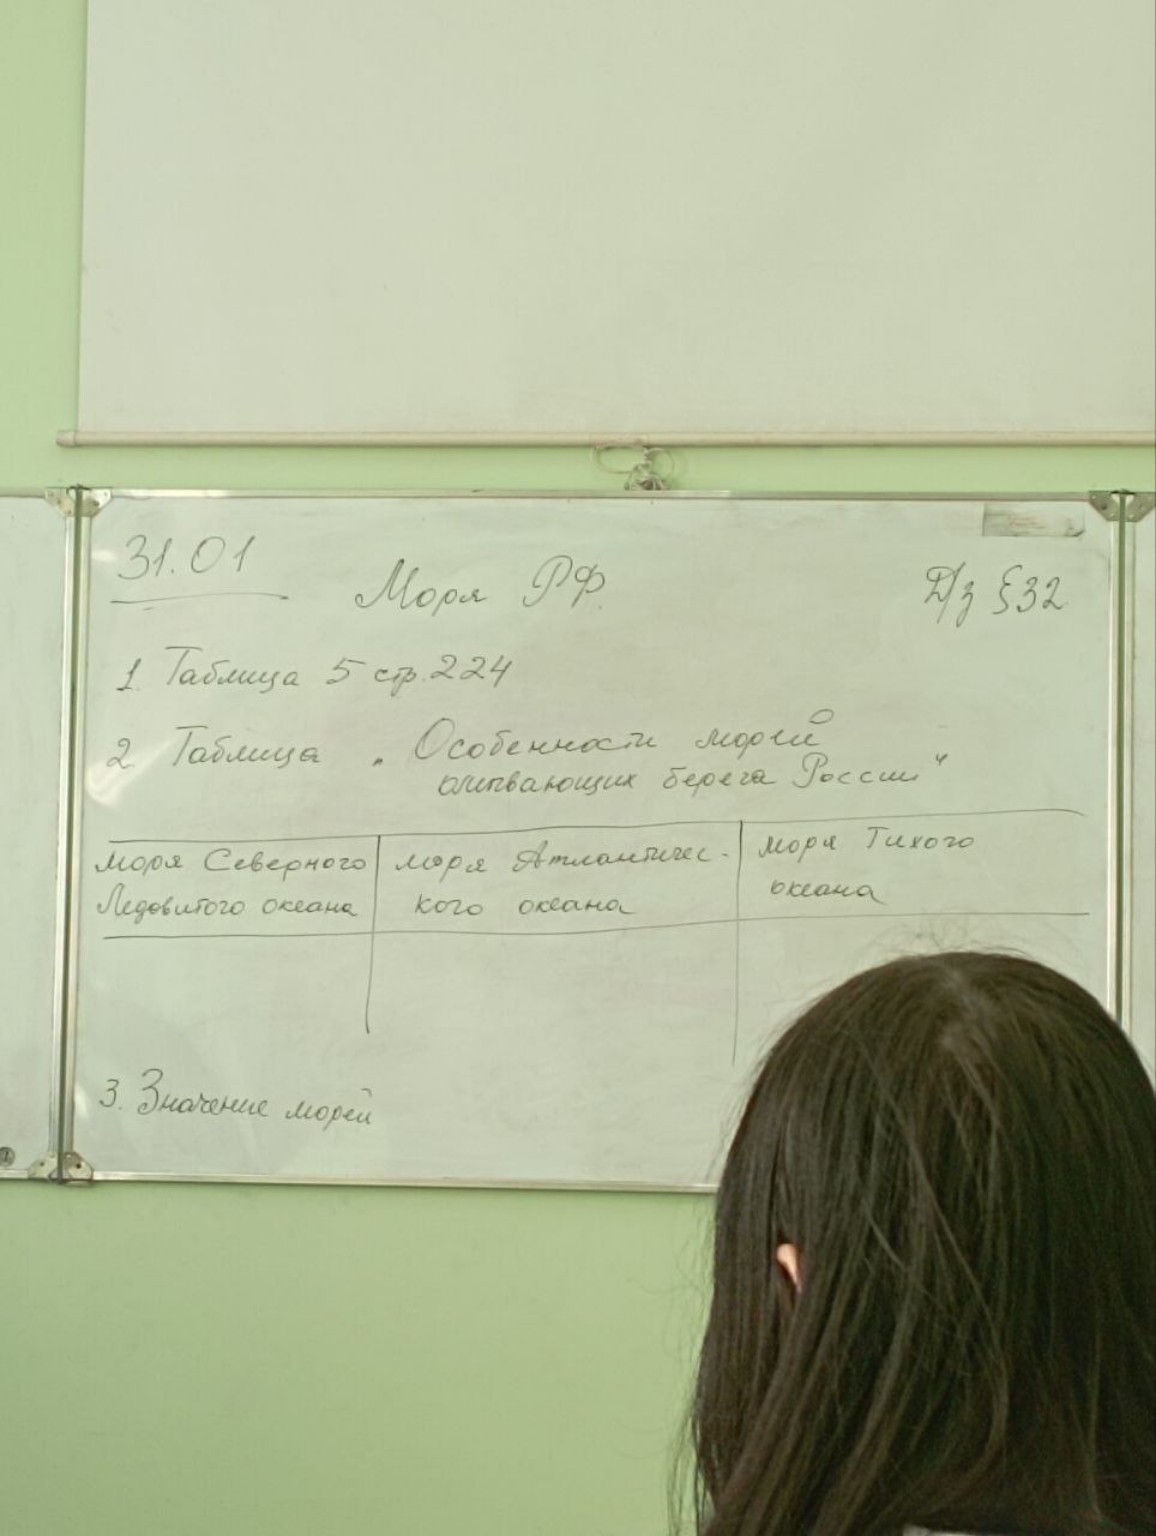 31.01
Моря РФ.
Д/з §32
1. Таблица 5 стр. 224
2. Таблица „Особенности морей
омывающих берега России“
моря Северного
Ледовитого океана
моря Атлантичес-
кого океана
моря Тихого
океана
3. Значение морей